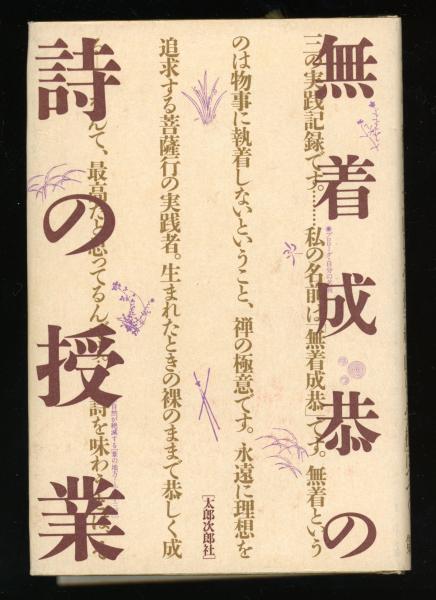 無着成恭の
詩の授業
の実践記録です。……私の名前は「無着成恭」です。無着という
のは物事に執着しないということ、禅の極意です。永遠に理想を
追求する菩薩行の実践者。生まれたときの裸のままで恭しく成
んて、最高だと思ってるん
詩を味わ
［太郎次郎社］